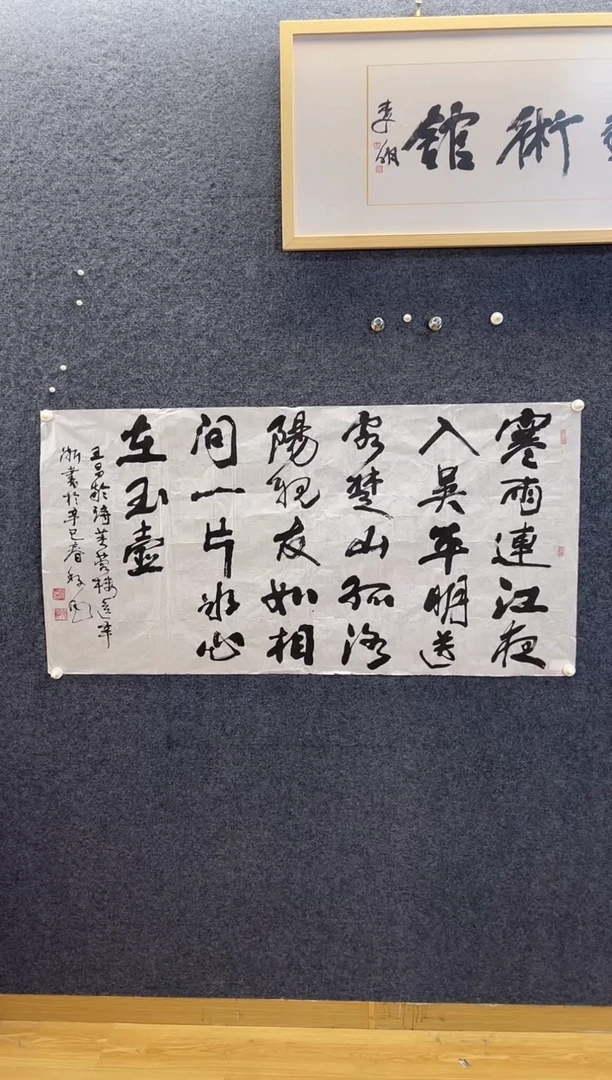 術館
寒雨連江夜
入吳平明送
客楚山孤洛
陽親友如相
问一片冰心
在玉壺
王昌龄詩芙蓉楼送辛
渐書於辛巳春